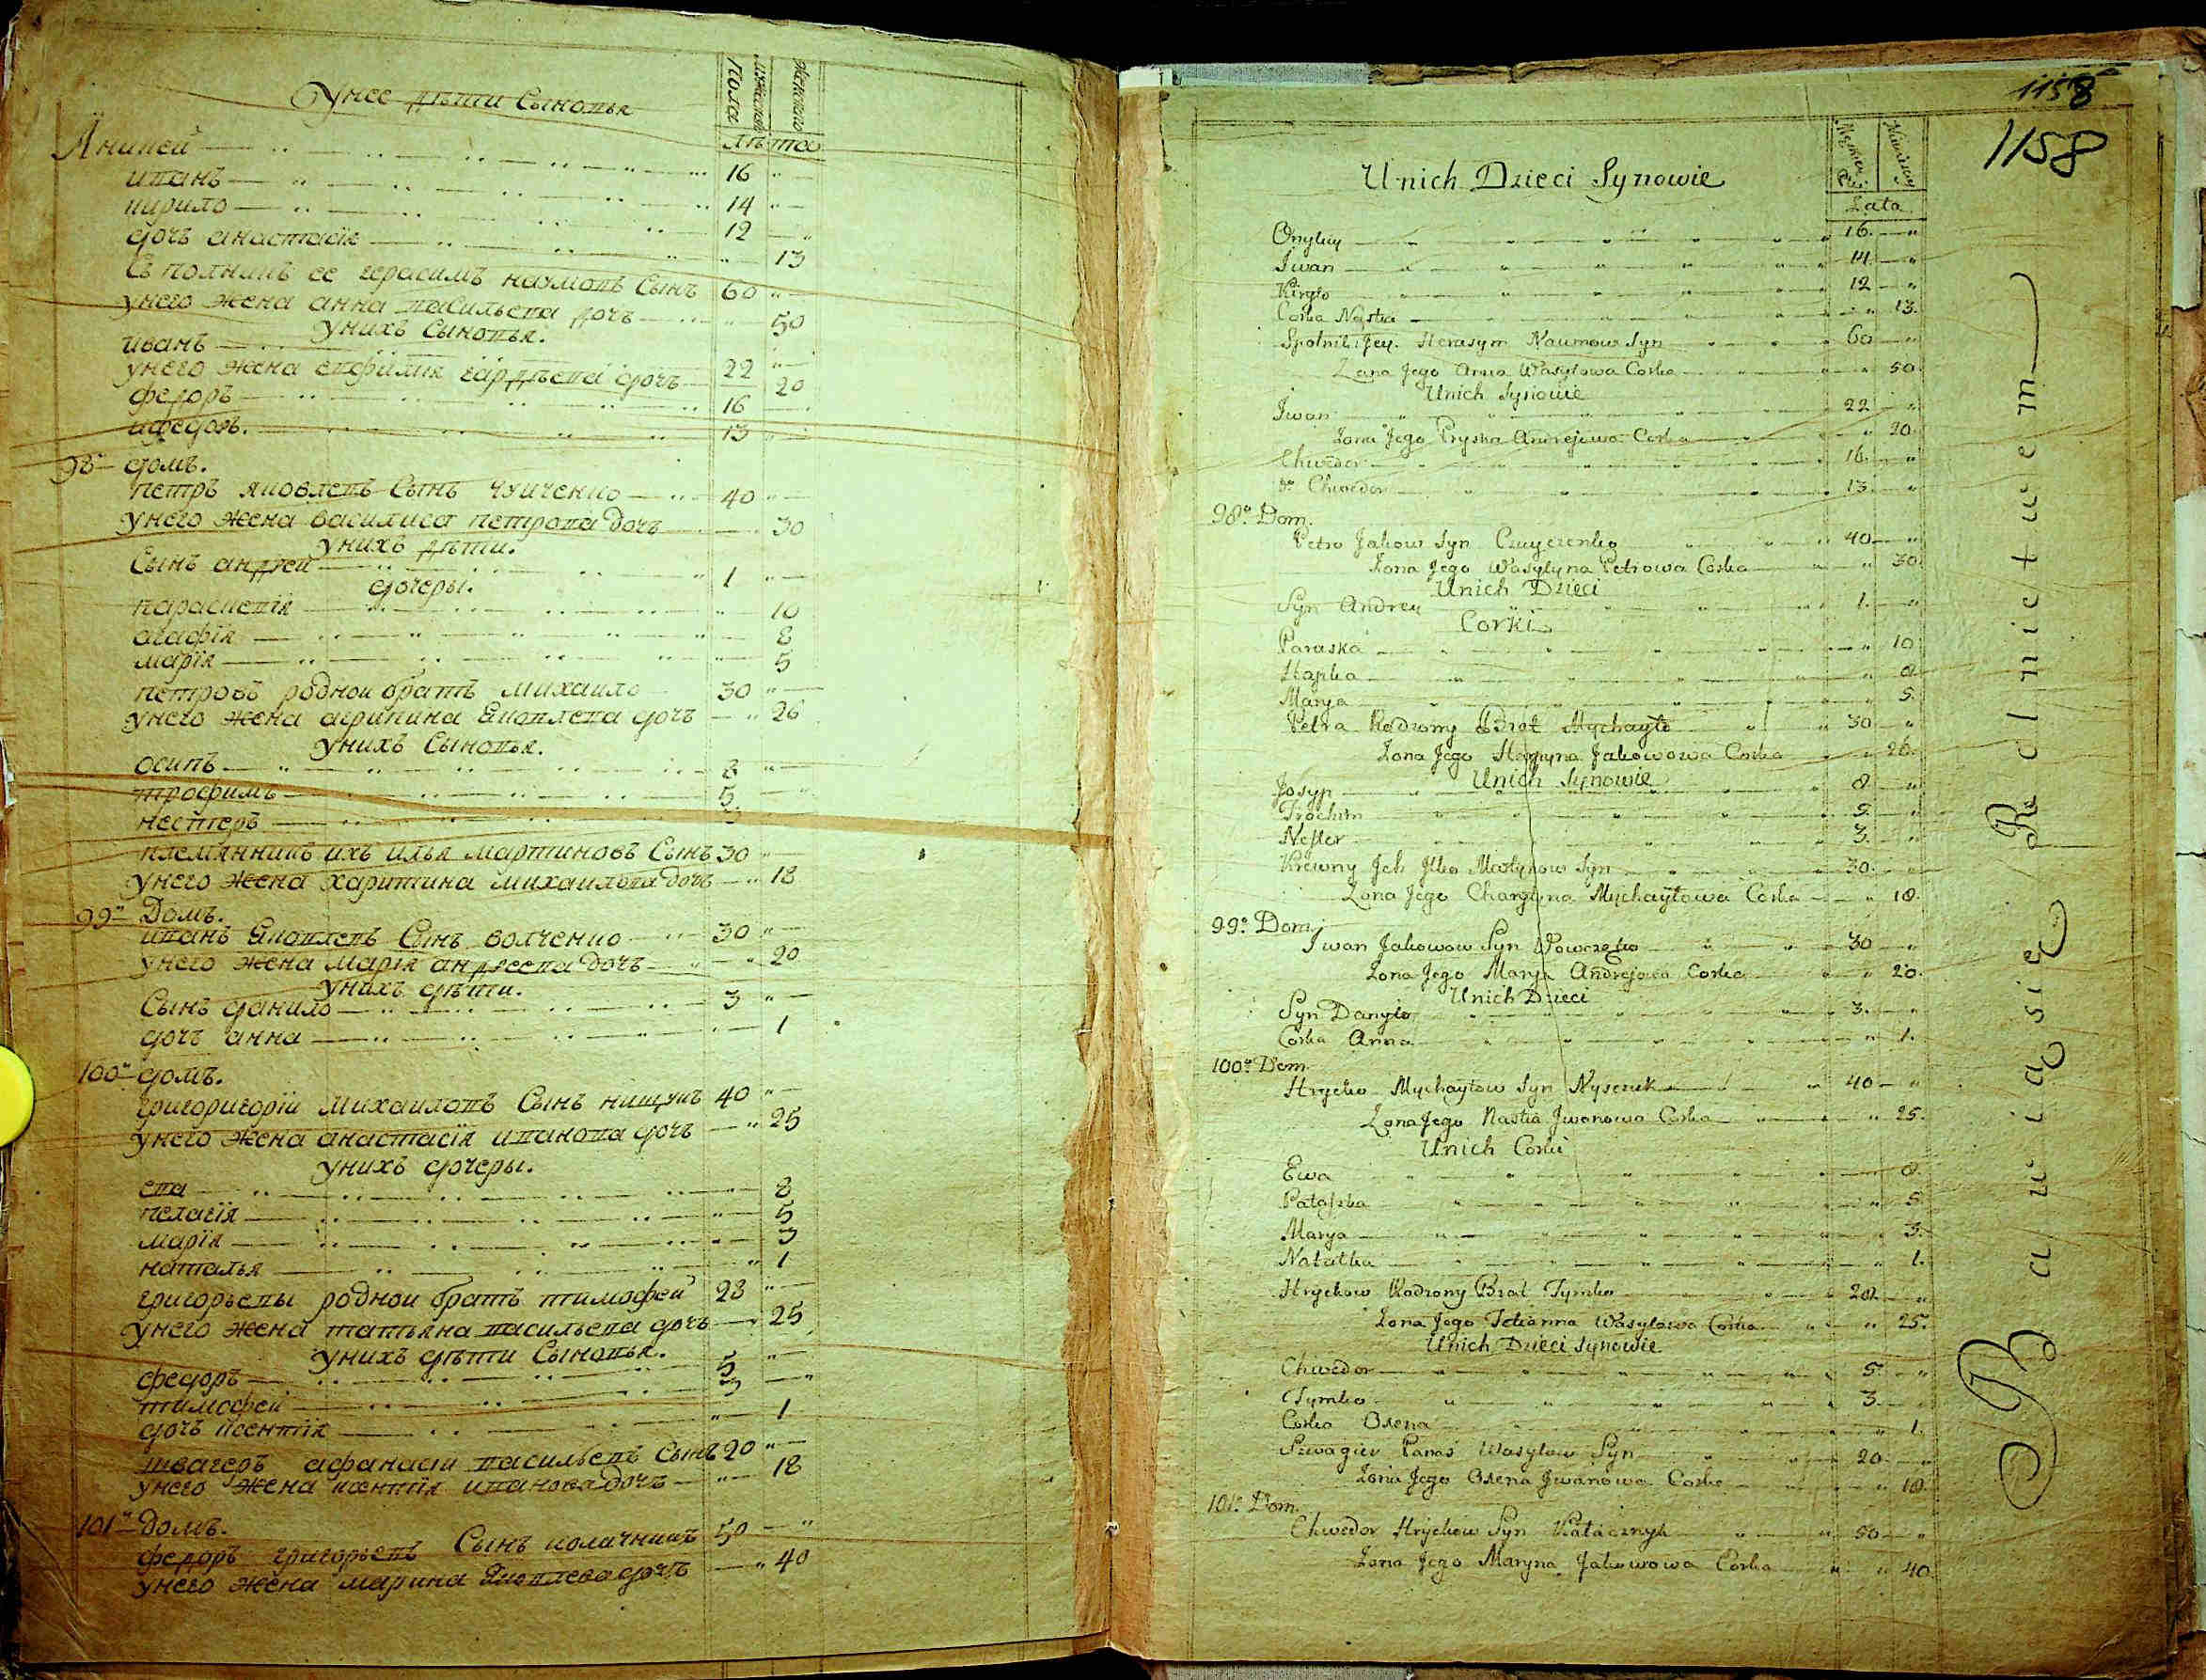 Унее дѣти Сыновья
пола
мужеска
женскаго
лѣта
Аникей 16
иванъ 14
кирило 12
дочъ анастасія 13
Съ полникъ ее герасимъ наумовъ Сынъ 60
унего жена анна васильева дочъ 50
унихъ Сыновья.
иванъ 22
унего жена ефимия дочъ 20
федоръ 16
ифедоръ. 13
98й домъ.
петръ яковлевъ Сынъ чуйченко 40
унего жена василиса петрова дочъ 30
унихъ дѣти.
Сынъ андрей 1
дочеры.
параскевія 10
агафія 8
марія 5
петровъ родной братъ михаило 30
унего жена агрипина яковлева дочъ 26
унихъ Сыновья.
осипъ 8
трофимъ 5
нестеръ 3
племянникъ ихъ илья мартиновъ Сынъ 30
унего жена харитина михаилова дочъ 18
99й Домъ.
иванъ яковлевъ Сынъ волченко 30
унего жена марія андреева дочъ 20
унихъ дѣти.
Сынъ данило 3
дочъ анна 1
100й домъ.
григоригорій михаиловъ Сынъ нищукъ 40
унего жена анастасія иванова дочъ 25
унихъ дочеры.
ева 8
пелагія 5
марія 3
наталья 1
григорьевы родной братъ тимофей 28
унего жена татьяна васильева дочъ 25
унихъ дѣти Сыновья.
федоръ 5
тимофей 3
дочъ ксентія 1
швагеръ афанасій васильевъ Сынъ 20
унего жена ксентія иванова дочъ 18
101й домъ.
федоръ григорьевъ Сынъ колачникъ 50
унего жена марина яковлева дочъ 40
1158
1158
Unich Dzieci Synowie
Lata
Onykiy 16.
Iwan 14.
Kiryło 12
Corka Nastia 13.
Spolnik Jey. Herasym Naumow Syn 60
Zona Jego Anna Wasylowa Corka 50.
Unich Synowie
Iwan 22
Zona Jego Pryska Andrejowa Corka 20.
Chwedor 16.
do Chwedor 13.
98o Dom.
Petro Jakow Syn Czuyczenko 40
Zona Jego Wasylyna Petrowa Corka 30.
Unich Dzieci
Syn Andrey 1.
Corki
Paraska 10.
Hapka 8
Marya 5.
Petra Rodzony Brat Mychayło 30
Zona Jego Hapyna Jakowowa Corka 26.
Unich Synowie
Josyp 8
Trochim 5.
Nester 3.
Krewny Jch Jlko Martynow Syn 30.
Zona Jego Charytyna Mychayłowa Corka 18.
99o Dom.
Iwan Jakowow Syn Wowczeko 30
Zona Jego Marya Andrejowa Corka 20.
Unich Dzieci
Syn Danyło 3.
Corka Anna 1.
100o Dom
Hrycko Mychayłow Syn Nyszczuk 40
Zona Jego Nastia Jwanowa Corka 25.
Unich Corki
Ewa 8.
Patajka 5
Marya 3.
Natalka 1.
Hryckow Rodzony Brat Tymko 28.
Zona Jego Tetianna Wasylowa Corka 25.
Unich Dzieci Synowie
Chwedor 5
Tymko 3.
Corka Oxena 1.
Szwagier Panas Wasylow Syn 20.
Zona Jego Oxena Jwanowa Corka 18.
101o Dom.
Chwedor Hryckow Syn Kałacznyk 50
Zona Jego Maryna Jakowowa Corka 40.
Bawiąc się Rolnictwem